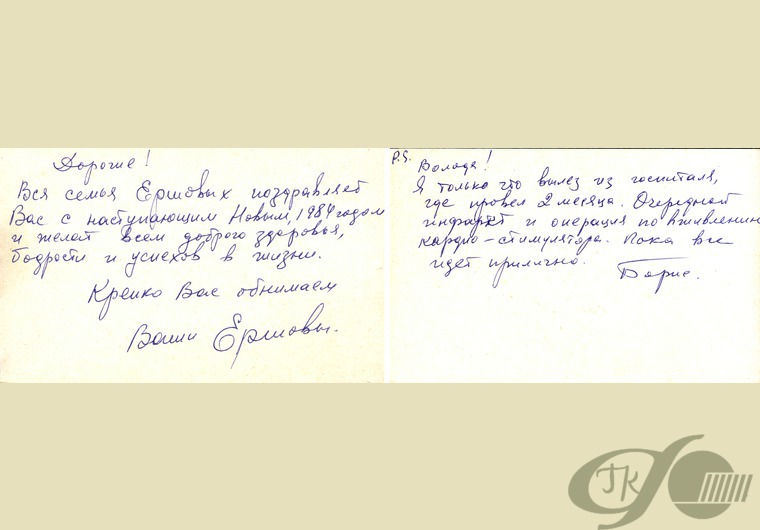 Дорогие!
Вся семья Ершовых поздравляет
Вас с наступающим Новым, 1984 годом
и желает всем доброго здоровья,
бодрости и успехов в жизни.
Крепко Вас обнимаем
Ваши Ершовы.
P.S.
Володя!
Я только что вылез из госпиталя,
где провел 2 месяца. Очередной
инфаркт и операция по вживлению
кардио-стимулятора. Пока все
идет прилично.
Борис.
ГК